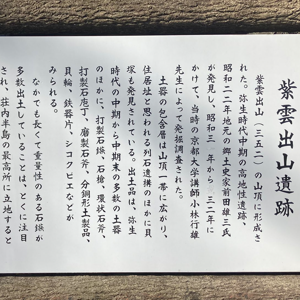 紫雲出山遺跡
紫雲出山(三五二)の山頂に形成さ
れた。弥生時代中期の高地性遺跡、
昭和二二年地元の郷土史家前田雄三氏
が発見し、昭和三〇年から三二年に
かけて、当時の京都大学講師小林行雄
先生によって発掘調査された。
土器の包含層は山頂一帯に広がり、
住居址と思われる列石遺構のほかに貝
塚も発見されている。出土品は、弥生
時代の中期から中期末の多数の土器
のほかに、打製石鏃、石槍、環状石斧、
打製石庖丁、磨製石斧、分銅形土製品、
貝輪、鉄器片、シコクビエなどが
みられる。
なかでも長くて重量性のある石鏃が
多数出土していることは、とくに注目
され、荘内半島の最高所に立地すると